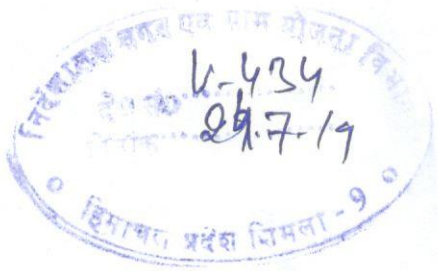 निदेशालय नगर एवं ग्राम योजना विभाग
V-434
24.7.19
हिमाचल प्रदेश शिमला-9